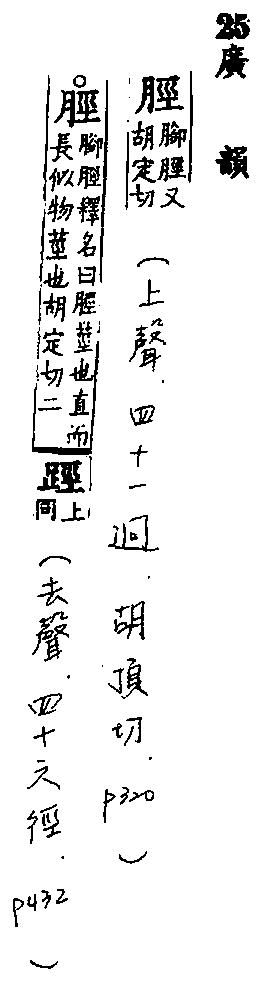 25廣韻
脛腳脛又胡定切(上聲.四十一迥.胡頂切.p320)
脛腳脛釋名曰脛莖也直而長似物莖也胡定切二踁上同(去聲.四十六徑.p432)